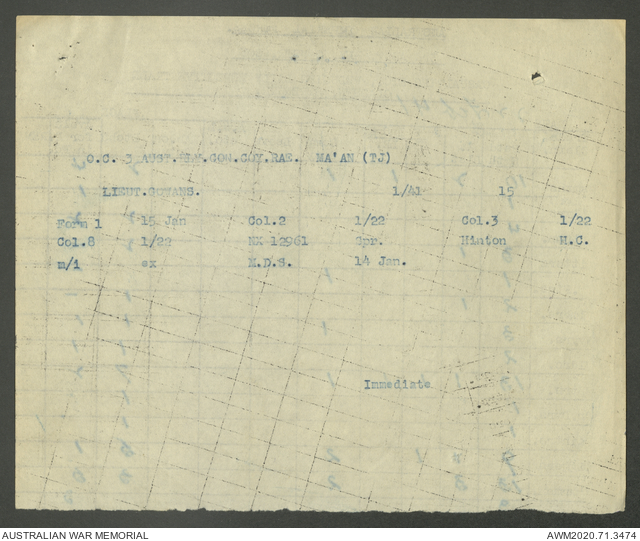 O.C. 3 AUST. RLY.CON.COY.RAE. MA'AN (TJ)
LIEUT.GOYANS. 1/41 15
Form 1 15 Jan Col.2 1/22 Col.3 1/22
Col.8 1/22 NX 12961 Spr. Hinton H.C.
m/i ex M.D.S. 14 Jan.
Immediate
AUSTRALIAN WAR MEMORIAL AWM2020.71.3474